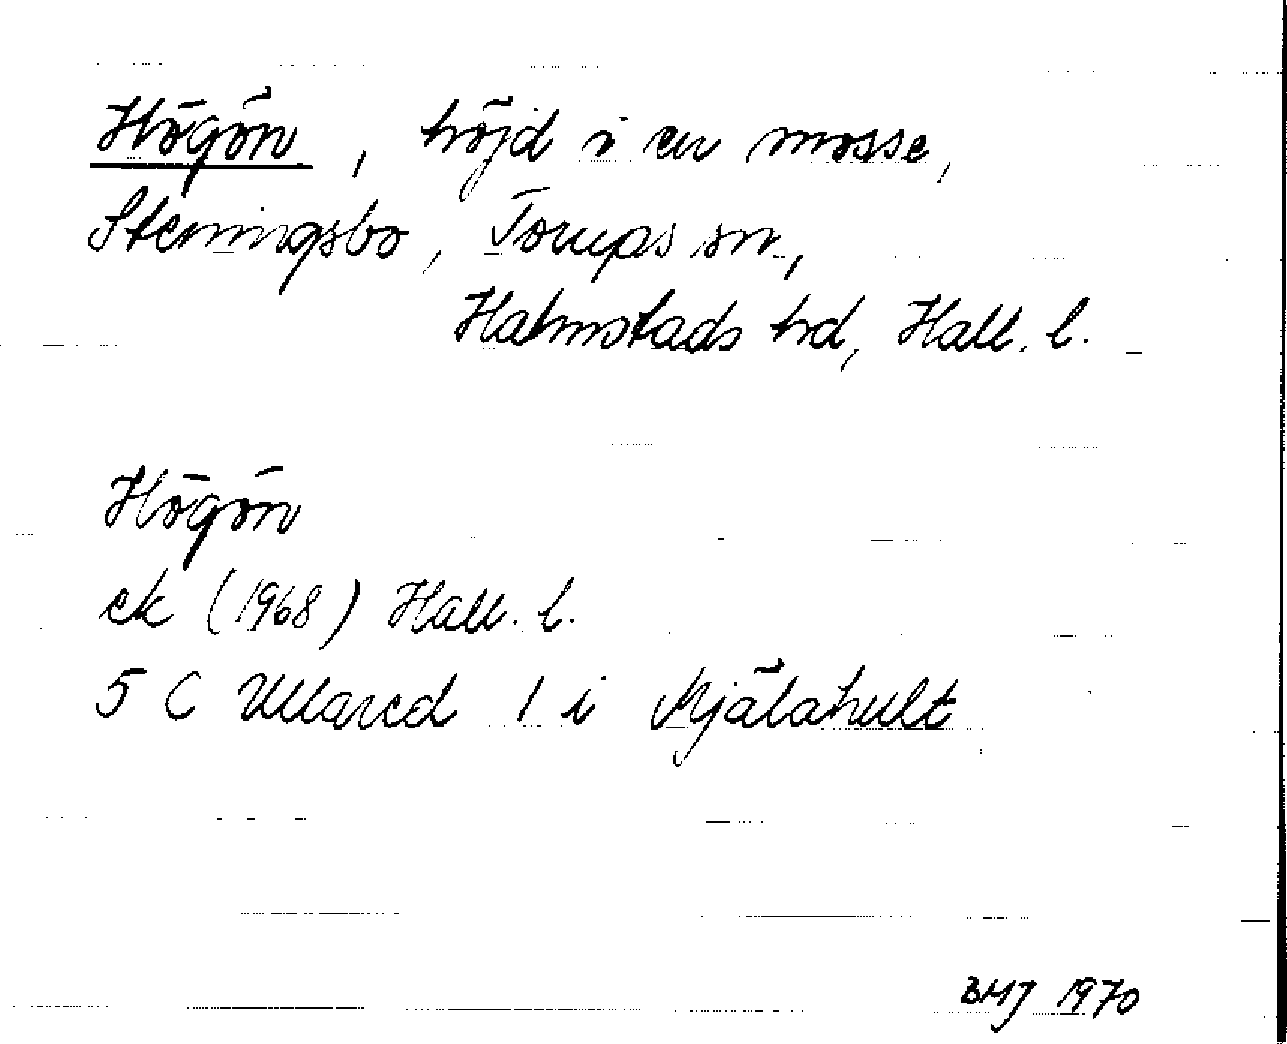 Högön, höjd i en mosse,
Steningsbo, Torups sn,
Halmstads hd, Hall. l.
Högön
ek (1968) Hall. l.
5 C Ullared 1 i Mjälahult
BMJ 1970